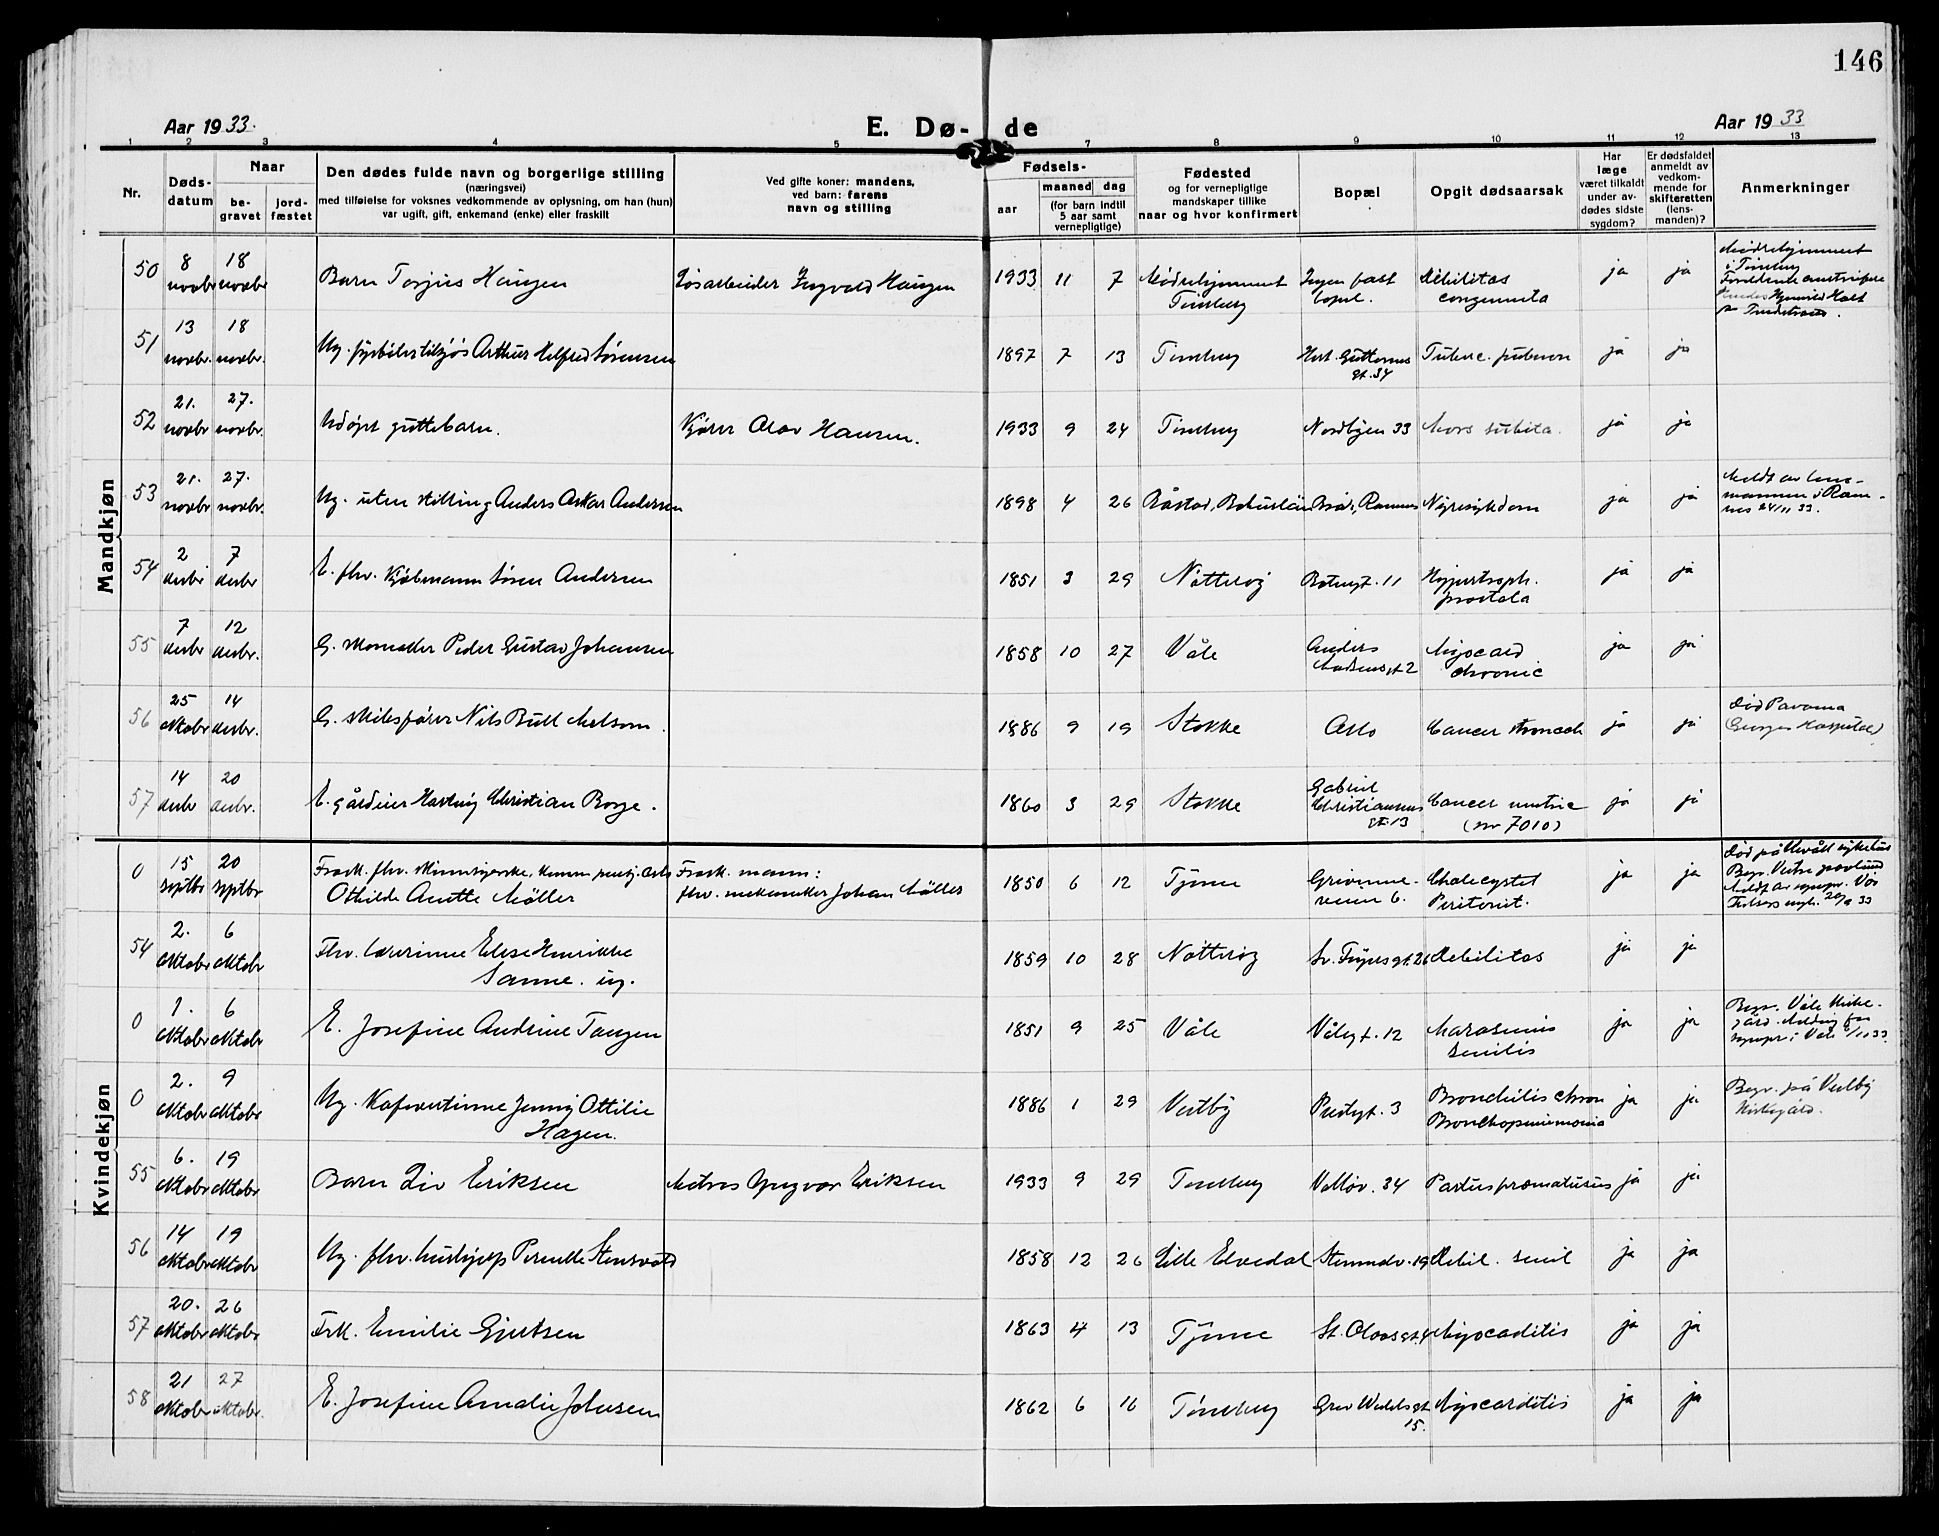 146
Aar 1933.
E. Dø-de
Aar 1933
1 2 3 4 5 7 8 9 10 11 12 13
Nr.
Døds-
datum
Naar
be-
gravet
jord-
fæstet
Den dødes fulde navn og borgerlige stilling
(næringsvei)
med tilføielse for voksnes vedkommende av oplysning, om han (hun)
var ugift, gift, enkemand (enke) eller fraskilt
Ved gifte koner: mandens,
ved barn: farens
navn og stilling
Fødsels-
aar
maaned
dag
(for barn indtil
5 aar samt
vernepligtige)
Fødested
og for vernepligtige
mandskaper tillike
naar og hvor konfirmert
Bopæl
Opgit dødsaarsak
Har
læge
været tilkaldt
under av-
dødes sidste
sygdom?
Er dødsfaldet
anmeldt av
vedkom-
mende for
skifteretten
(lens-
manden)?
Anmerkninger
Mandkjøn
50 8 novbr 18 novbr Barn Torjus Haugen Løsarbeider Ingvald Haugen 1933 11 7 Mødrehjemmet Tønsberg Ingen fast bopel. Debilitas congenita ja ja Mødrehjemmet i Tønsberg
51 13 novbr. 18 novbr. Ug. fyrbøter tilsjøs Arthur Alfred Sørensen 1897 7 13 Tønsberg Hert. Guttormsgt. 34 Tuberc. pulmon ja ja
52 21. novbr 27. novbr. Udøpt guttebarn. Kjører Olav Hansen. 1933 9 24 Tønsberg Nordbyen 33 Mors subita. ja ja
53 21. novbr 27. novbr. Ug. uten stilling Anders Oskar Andersen 1898 4 26 Båstad, Bohuslän Ramnes Nyresykdom ja ja Meldt av lensmannen i Ramnes 24/11 33.
54 2 desbr 7 desbr E. fhv. Kjøbmann Søren Andersen 1851 3 29 Nøtterøy 11 Hypertroph. prostata ja ja
55 7 desbr 12 desbr. G. skomaker Peder Gustav Johansen 1858 10 27 Våle Anders Madsensgt 2 Myocard chronic ja ja
56 25 oktobr 14 desbr. G. skibsfører Nils Bull Melsom. 1886 9 19 Stokke Oslo Cancer stomach ja ja Død Panama (Gorgas Hospital)
57 14 desbr 20 desbr. E. gårdeier Christian Borge. 1860 3 29 Stokke Gabriel Christiansens gt. 13 Cancer (nr 7010) ja ja
Kvindekjøn
0 15 septbr 20 septbr Othilde Anette Møller Frask. mann: fhv. mekaniker Johan Møller 1850 6 12 Tjøme 6. Cholecystet Peritonit. ja ja
54 2. oktobr 6 oktobr Fhv. lærerinne Elise Henrikke Sanne. ug. 1859 10 28 Nøtterøy Sv. Føynsgt. 26 Debilitas ja ja
0 1. oktobr 6 oktobr E. Josefine Andrine Tangen 1851 9 25 Våle Vålegt. 12 Marasmus senilis ja ja Begr. Våle kirkegård. Melding fra sognepr i Våle
0 2. oktobr 9 oktobr Ug. Kafevertinne Jenny Ottilie Hagen. 1886 1 29 Vestby Prestgt. 3 Bronchitis chron Bronchopneumonia ja ja Begr. på Vestby kirkegård.
55 6. oktobr 19 oktobr Barn Liv Eriksen Matros Yngvar Eriksen 1933 9 29 Tønsberg Valløv. 34 Partus præmaturus ja ja
56 14 oktobr 19 oktobr Ug. fhv. hushjelp Pernille Stensvold 1858 12 26 Lille Elvedal 19 Debil. senil ja ja
57 20. oktobr 26 oktobr Frk. Emilie Gjertsen 1863 4 13 Tjøme St. Olavsgt. 9 Myocarditis ja ja
58 21 oktobr 27 oktobr. E. Josefine Amalie Johnsen 1862 6 16 Tønsberg Grev Wedelsgt 15. Myocarditis ja ja